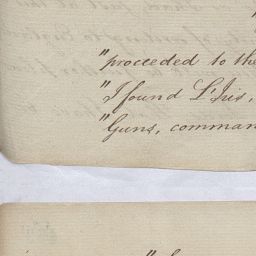 "proceeded to the
"I found L'Iris,
"Guns, comman